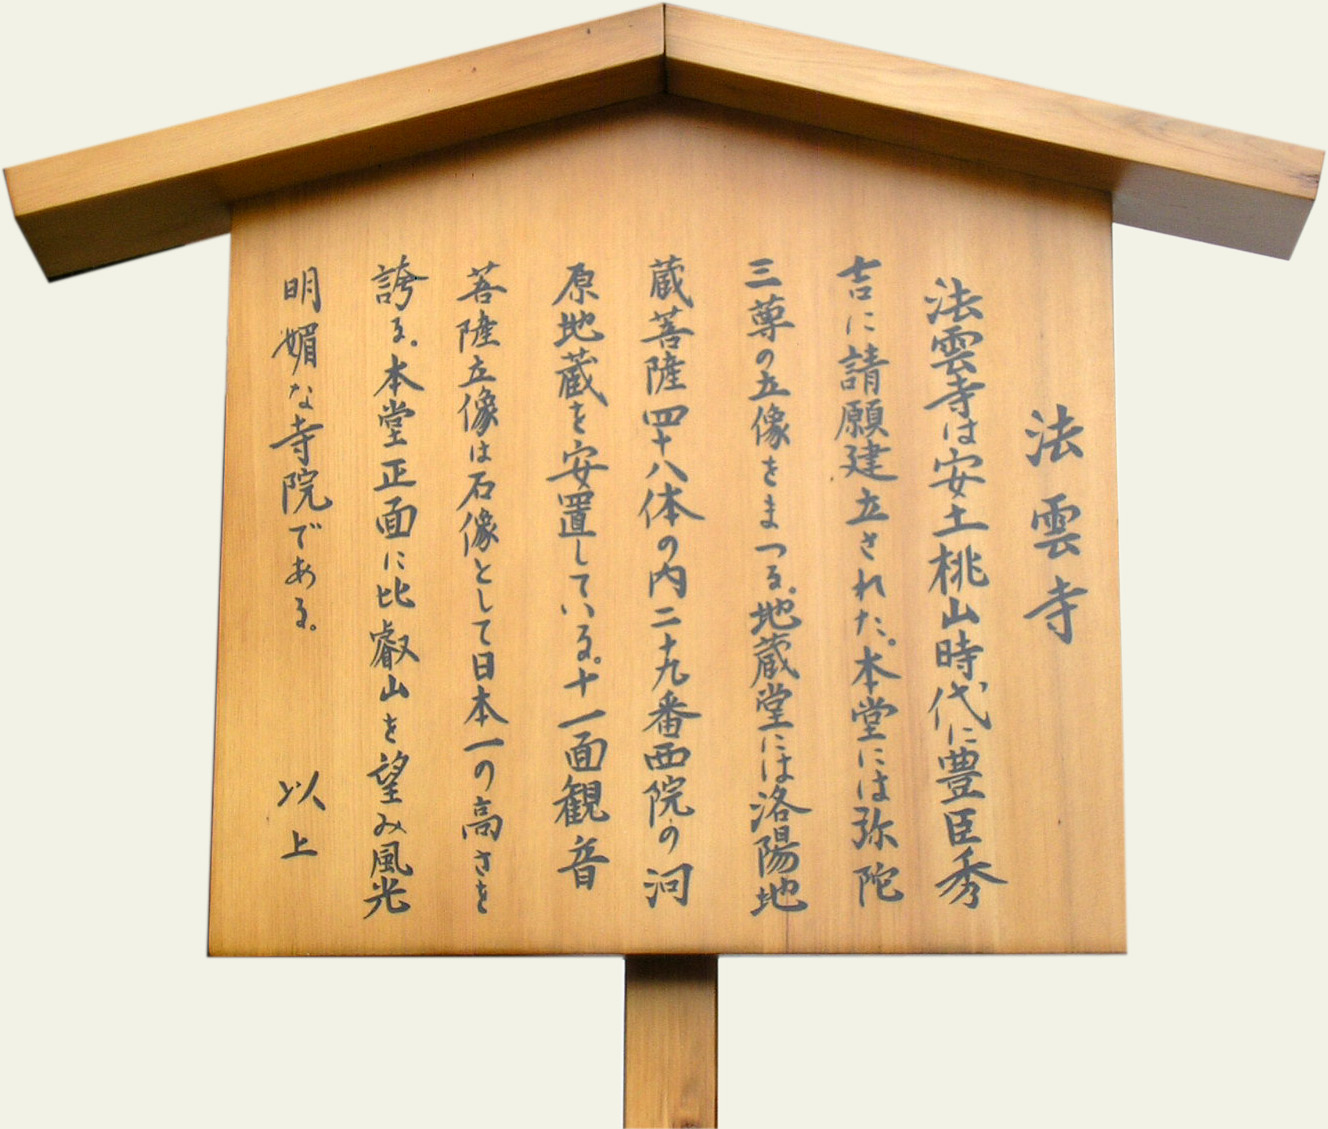 法雲寺
法雲寺は安土桃山時代に豊臣秀
吉に請願建立された。本堂には弥陀
三尊の立像をまつる。地蔵堂には洛陽地
蔵菩薩四十八体の内二十九番西院の河
原地蔵を安置している。十一面観音
菩薩立像は石像として日本一の高さを
誇る。本堂正面に比叡山を望み風光
明媚な寺院である。 以上